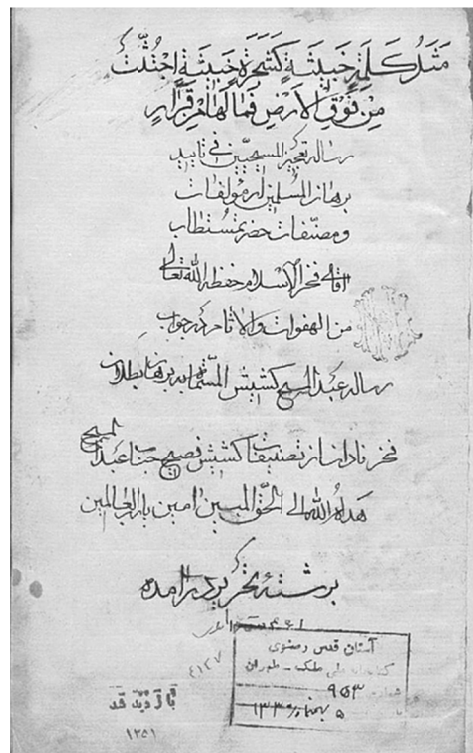 مَثَلُ كَلِمَةٍ خَبِيثَةٍ كَشَجَرَةٍ خَبِيثَةٍ اجْتُثَّتْ
مِنْ فَوْقِ الْاَرْضِ فَمَا لَهَا مِنْ قَرَارٍ
رساله تعجیز المسیحیین فی تایید
برهان المسلمین از مؤلفات
و مصنّفات حضرت مستطاب
آقای فخر الاسلام حفظه الله تعالی
من الهفوات و الآثام در جواب
رساله عبد المسیح کشیش المسمّاة به برهان بطلان
فخر نادان از تصنیفات کشیش فصیح جناب عبد المسیح
هداه الله الی الحقّ المبین آمین یا رب العالمین
برشته تحریر در آمده
۴۱۲۷
آستان قدس رضوی
کتابخانه ملی ملک - طهران
شماره ۹۵۳
۵ بهمن ماه ۱۳۳
بازدید شد
۱۲۵۱